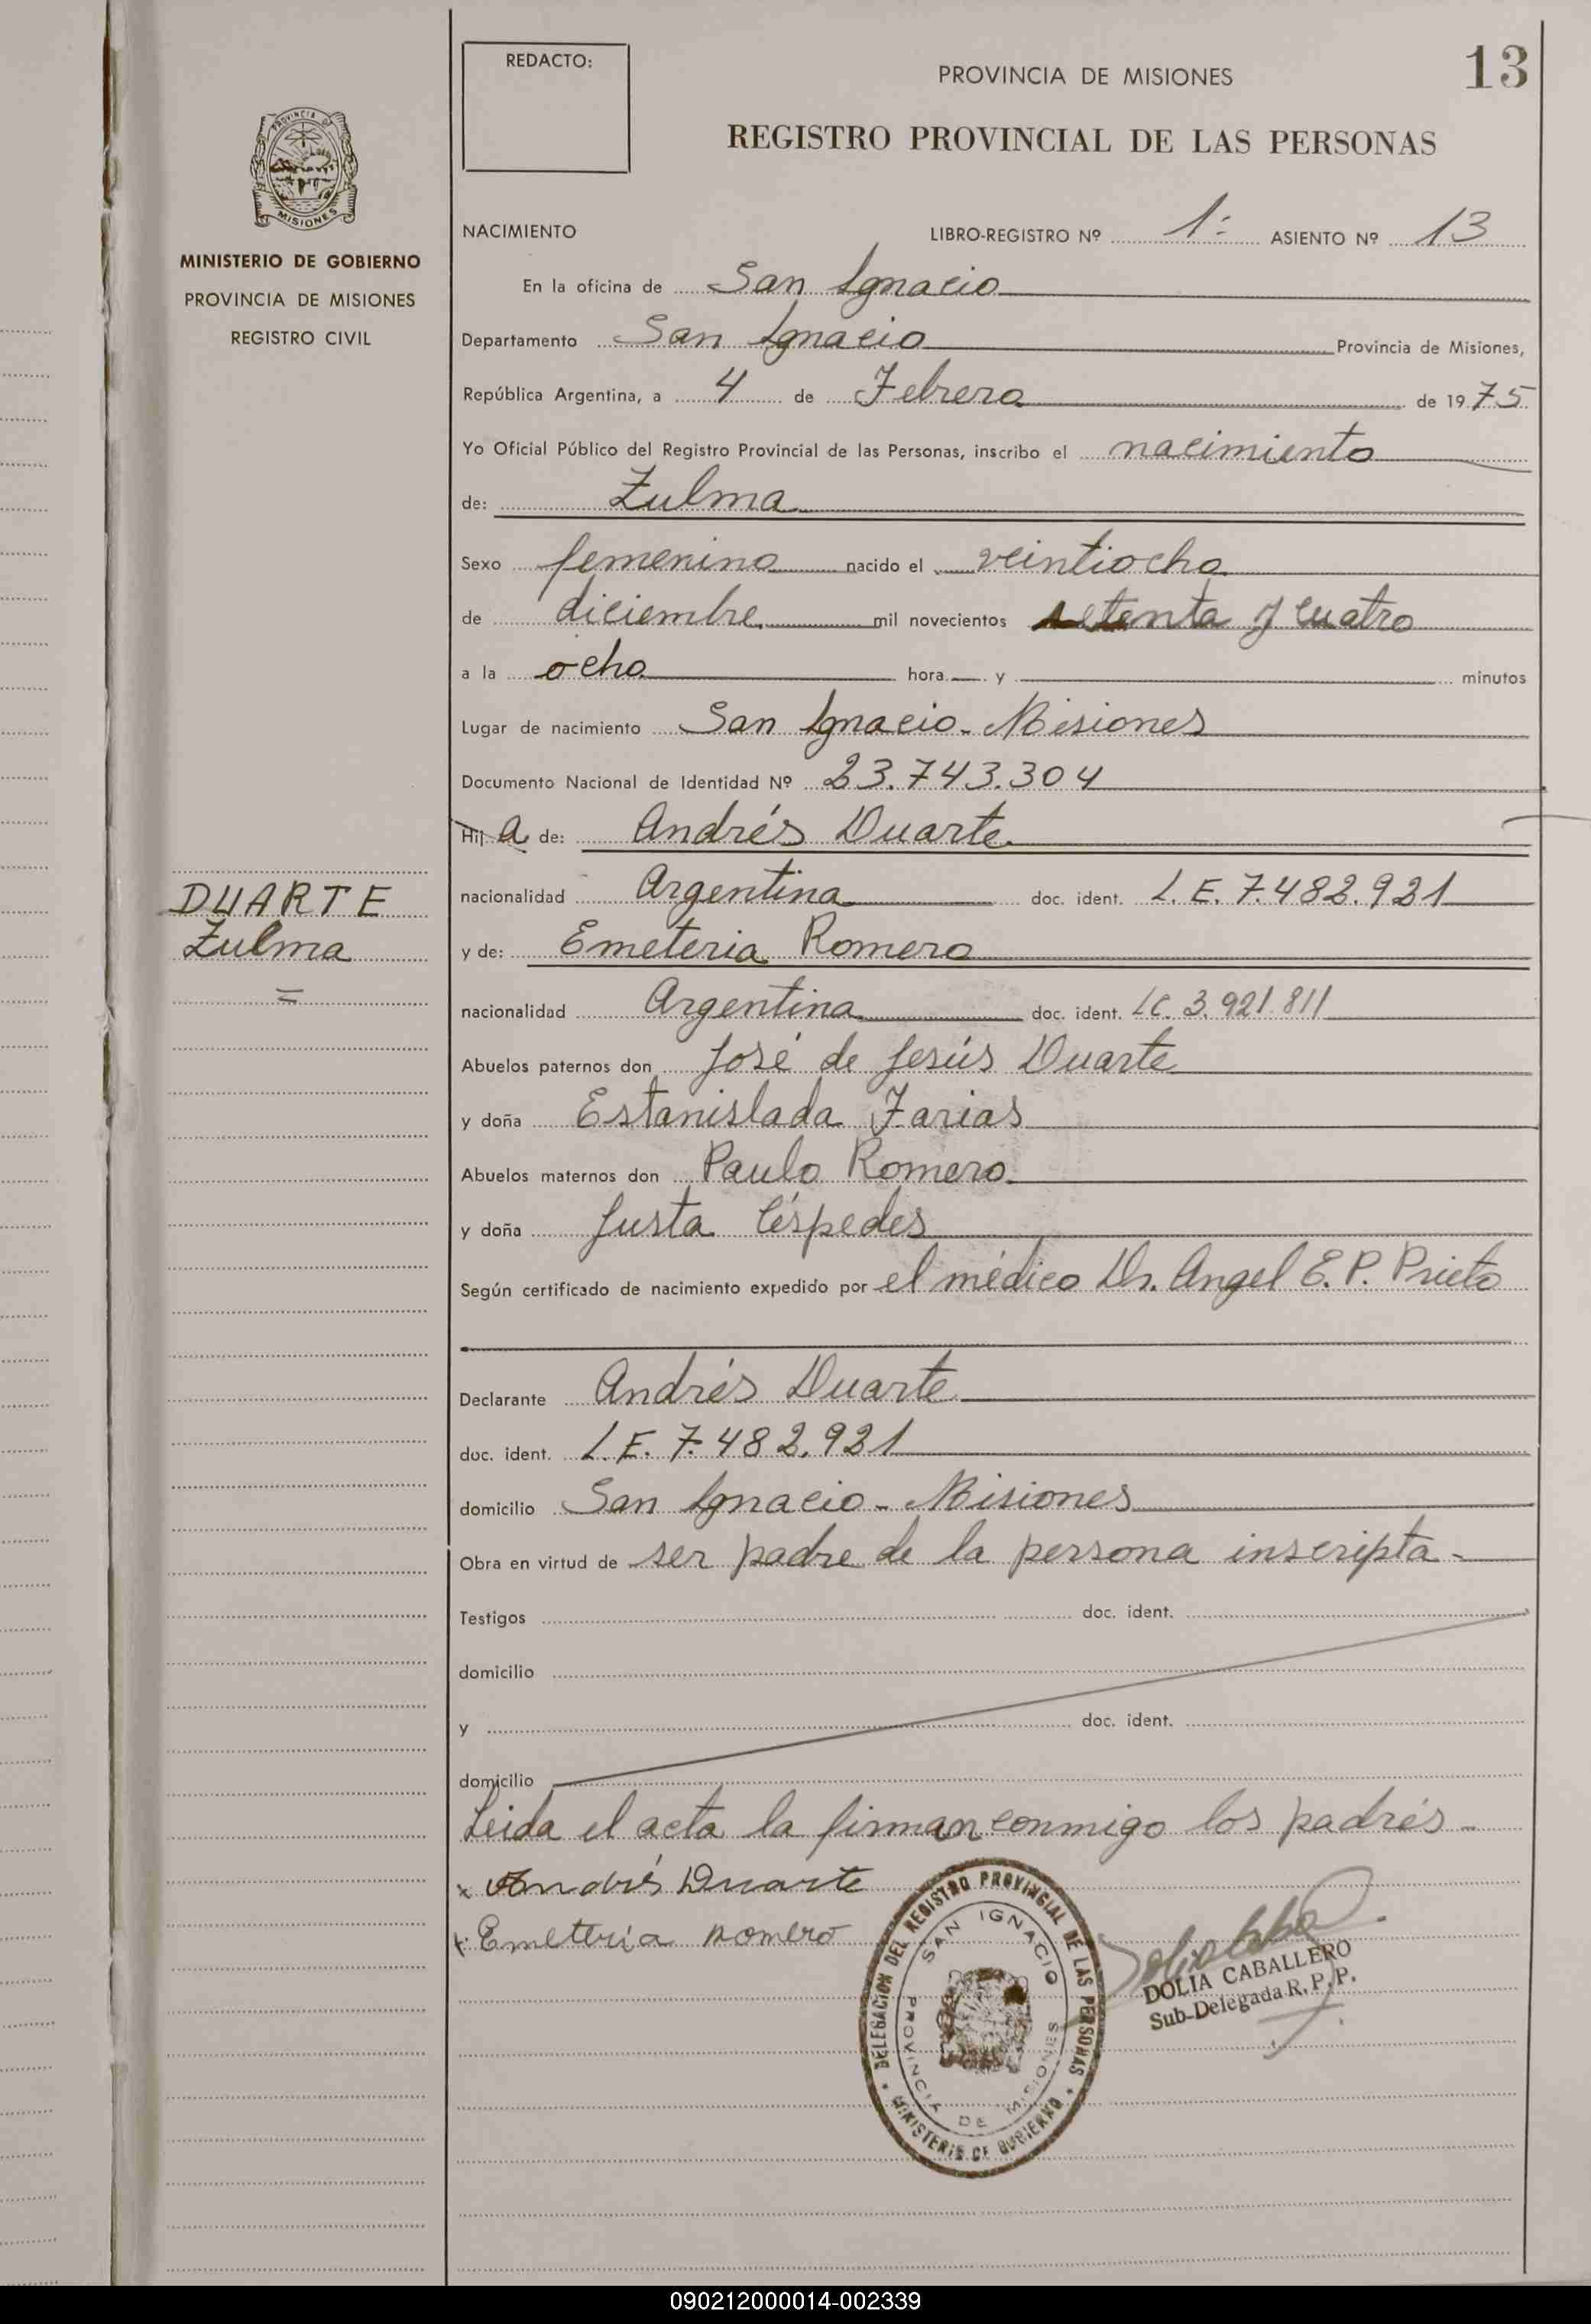 REDACTO:
PROVINCIA DE MISIONES
13
REGISTRO PROVINCIAL DE LAS PERSONAS
PROVINCIA DE
MISIONES
MINISTERIO DE GOBIERNO
PROVINCIA DE MISIONES
REGISTRO CIVIL
NACIMIENTO LIBRO-REGISTRO Nº 1º ASIENTO Nº 13
En la oficina de San Ignacio
Departamento San Ignacio Provincia de Misiones,
República Argentina, a 4 de Febrero de 1975
Yo Oficial Público del Registro Provincial de las Personas, inscribo el nacimiento
de: Zulma
Sexo femenino nacido el veintiocho
de diciembre mil novecientos setenta y cuatro
a la ocho hora y minutos
Lugar de nacimiento San Ignacio - Misiones
Documento Nacional de Identidad Nº 23.743.304
Hija de: Andrés Duarte
DUARTE
Zulma
=
nacionalidad Argentina doc. ident. L.E. 7.482.921
y de: Emeteria Romero
nacionalidad Argentina doc. ident. LC. 3.921.811
Abuelos paternos don José de Jesús Duarte
y doña Estanislada Farias
Abuelos maternos don Paulo Romero
y doña Justa Céspedes
Según certificado de nacimiento expedido por el médico Dr. Angel E. P. Prieto
Declarante Andrés Duarte
doc. ident. L.E. 7.482.921
domicilio San Ignacio - Misiones
Obra en virtud de ser padre de la persona inscripta -
Testigos doc. ident.
domicilio
y doc. ident.
domicilio
Leida el acta la firman conmigo los padres -
x Andrés Duarte
x Emeteria Romero
DELEGACION DEL REGISTRO PROVINCIAL DE LAS PERSONAS
SAN IGNACIO
PROVINCIA DE MISIONES
MINISTERIO DE GOBIERNO
DOLIA CABALLERO
Sub-Delegada R. P. P.
090212000014-002339